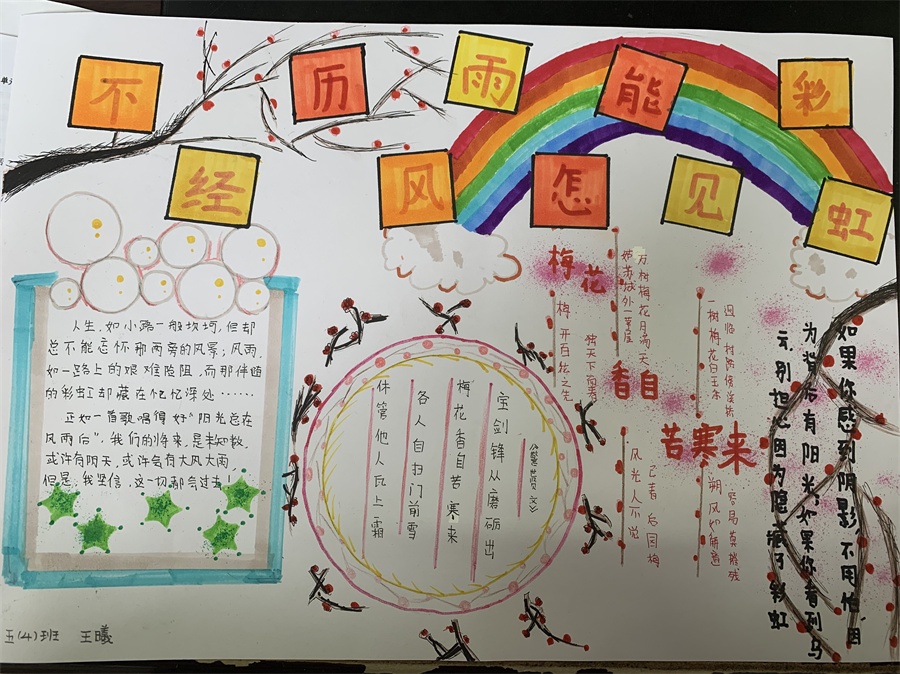 不经历风雨怎能见彩虹
人生，如小路一般坎坷，但却
总不能忘怀那两旁的风景；风雨，
如一路上的艰难险阻，而那伴随
的彩虹却藏在忆忆深处……
正如一首歌唱得好“阳光总在
风雨后”，我们的将来，是未知数，
或许有阴天，或许会有大风大雨，
但是，我坚信，这一切都会过去！
五(4)班 王曦
《警世贤文》
宝剑锋从磨砺出
梅花香自苦寒来
各人自扫门前雪
休管他人瓦上霜
梅花
香自
苦寒来
万树梅花月满天
姑苏城外一茅屋
一树梅花白玉条
梅开百花之先
独天下而春
朔风如解意
风光人不觉
已着后园梅
如果你感到阴影不用怕因
为背后有阳光，如果你看到乌
云，别担心因为隐藏了彩虹